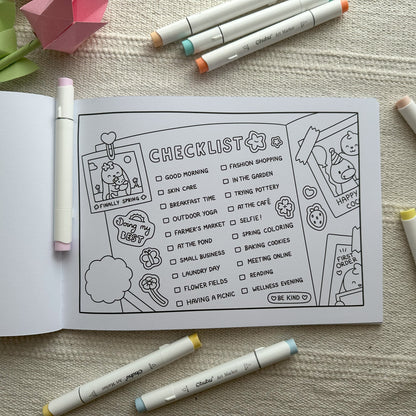 CHECKLIST
FINALLY SPRING
Doing my
BEST
GOOD MORNING
SKIN CARE
BREAKFAST TIME
OUTDOOR YOGA
FARMER'S MARKET
AT THE POND
SMALL BUSINESS
LAUNDRY DAY
FLOWER FIELDS
HAVING A PICNIC
FASHION SHOPPING
IN THE GARDEN
TRYING POTTERY
AT THE CAFÉ
SELFIE!
SPRING COLORING
BAKING COOKIES
MEETING ONLINE
READING
WELLNESS EVENING
BE KIND
HAPPY
COC
FIRST
ORDER
Ohuhu Art Marker
Ohuhu Art Marker